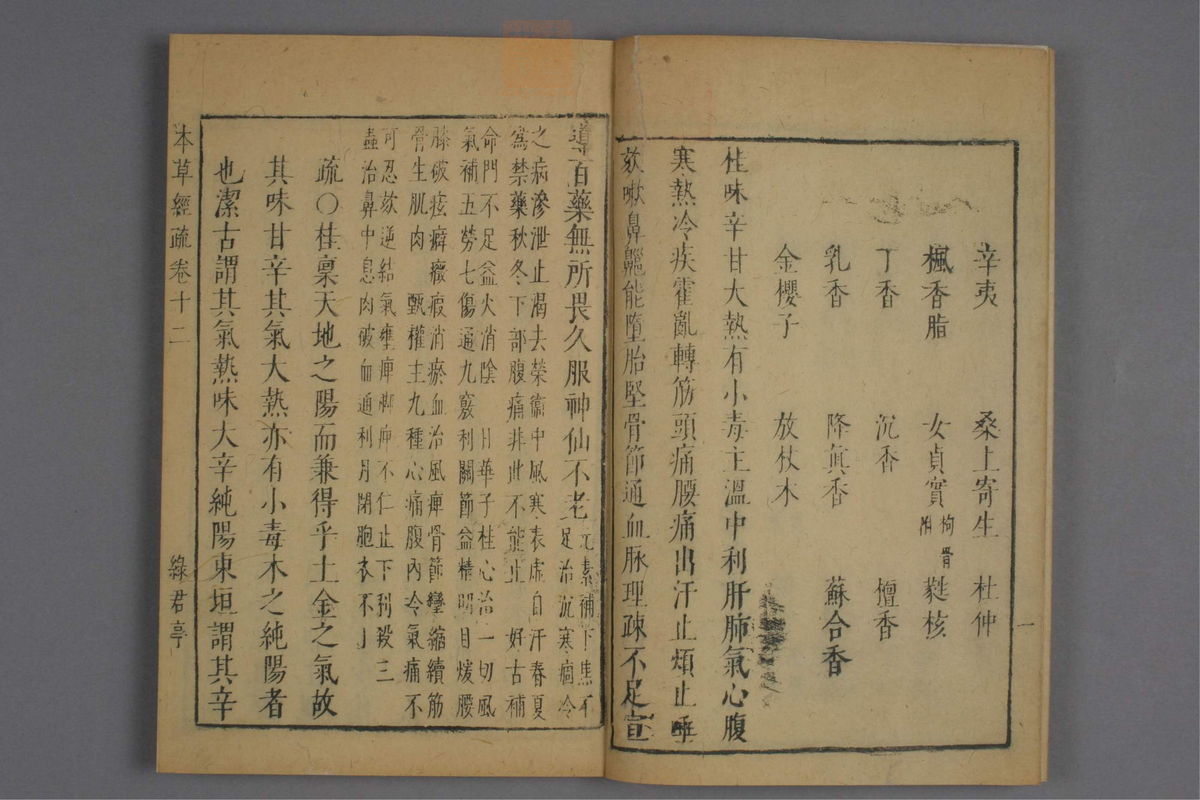 辛夷 桑上寄生 杜仲
楓香脂 女貞實 枸骨附 蕤核
丁香 沉香 檀香
乳香 降眞香 蘇合香
金櫻子 放杖木
一
桂味辛甘大熱有小毒主溫中利肝肺氣心腹
寒熱冷疾霍亂轉筋頭痛腰痛出汗止煩止唾
欬嗽鼻齆能墮胎堅骨節通血脉理疎不足宣
導百藥無所畏久服神仙不老元素補下焦不
足治沉寒痼冷
之病滲泄止渴去榮衞中風寒表虛自汗春夏
爲禁藥秋冬下部腹痛非此不能止 好古補
命門不足益火消陰 日華子桂心治一切風
氣補五勞七傷通九竅利關節益精明目煖腰
膝破痃癖癥瘕消瘀血治風痺骨節攣縮續筋
骨生肌肉 甄權主九種心痛腹內冷氣痛不
可忍欬逆結氣壅痺脚痺不仁止下利殺三
蟲治鼻中息肉破血通利月閉胞衣不下
疏〇桂稟天地之陽而兼得乎土金之氣故
其味甘辛其氣大熱亦有小毒木之純陽者
也潔古謂其氣熱味大辛純陽東垣謂其辛
本草經疏卷十二 綠君亭